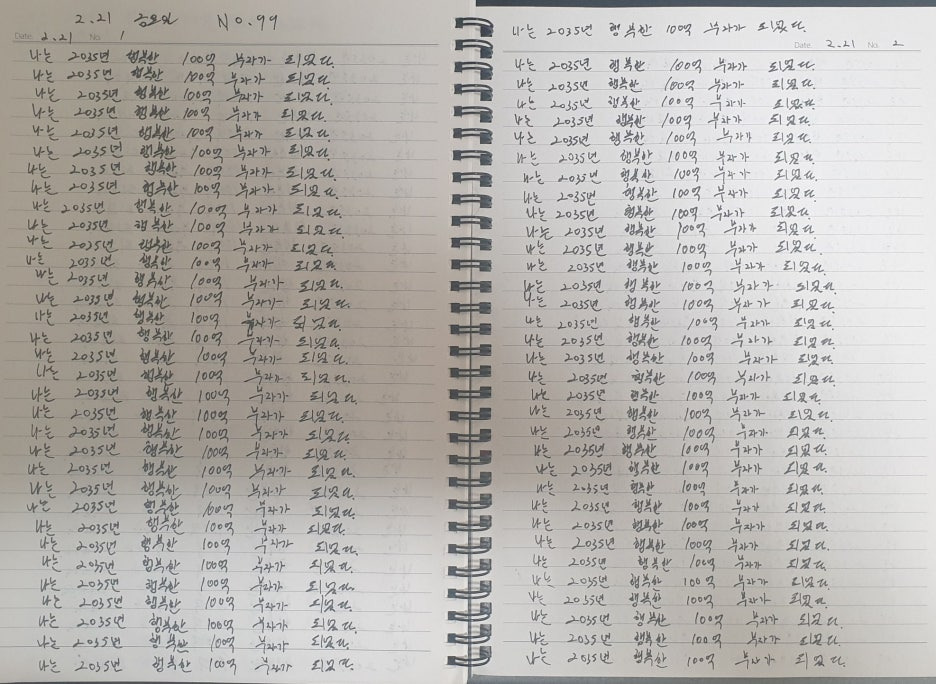 2.21 금요일 No.99
Date. 2.21 No. 1
나는 2035년 행복한 100억 부자가 되었다.
나는 2035년 행복한 100억 부자가 되었다.
나는 2035년 행복한 100억 부자가 되었다.
나는 2035년 행복한 100억 부자가 되었다.
나는 2035년 행복한 100억 부자가 되었다.
나는 2035년 행복한 100억 부자가 되었다.
나는 2035년 행복한 100억 부자가 되었다.
나는 2035년 행복한 100억 부자가 되었다.
나는 2035년 행복한 100억 부자가 되었다.
나는 2035년 행복한 100억 부자가 되었다.
나는 2035년 행복한 100억 부자가 되었다.
나는 2035년 행복한 100억 부자가 되었다.
나는 2035년 행복한 100억 부자가 되었다.
나는 2035년 행복한 100억 부자가 되었다.
나는 2035년 행복한 100억 부자가 되었다.
나는 2035년 행복한 100억 부자가 되었다.
나는 2035년 행복한 100억 부자가 되었다.
나는 2035년 행복한 100억 부자가 되었다.
나는 2035년 행복한 100억 부자가 되었다.
나는 2035년 행복한 100억 부자가 되었다.
나는 2035년 행복한 100억 부자가 되었다.
나는 2035년 행복한 100억 부자가 되었다.
나는 2035년 행복한 100억 부자가 되었다.
나는 2035년 행복한 100억 부자가 되었다.
나는 2035년 행복한 100억 부자가 되었다.
나는 2035년 행복한 100억 부자가 되었다.
나는 2035년 행복한 100억 부자가 되었다.
나는 2035년 행복한 100억 부자가 되었다.
나는 2035년 행복한 100억 부자가 되었다.
나는 2035년 행복한 100억 부자가 되었다.
나는 2035년 행복한 100억 부자가 되었다.
나는 2035년 행복한 100억 부자가 되었다.
나는 2035년 행복한 100억 부자가 되었다.
나는 2035년 행복한 100억 부자가 되었다.
Date. 2.21 No. 2
나는 2035년 행복한 100억 부자가 되었다.
나는 2035년 행복한 100억 부자가 되었다.
나는 2035년 행복한 100억 부자가 되었다.
나는 2035년 행복한 100억 부자가 되었다.
나는 2035년 행복한 100억 부자가 되었다.
나는 2035년 행복한 100억 부자가 되었다.
나는 2035년 행복한 100억 부자가 되었다.
나는 2035년 행복한 100억 부자가 되었다.
나는 2035년 행복한 100억 부자가 되었다.
나는 2035년 행복한 100억 부자가 되었다.
나는 2035년 행복한 100억 부자가 되었다.
나는 2035년 행복한 100억 부자가 되었다.
나는 2035년 행복한 100억 부자가 되었다.
나는 2035년 행복한 100억 부자가 되었다.
나는 2035년 행복한 100억 부자가 되었다.
나는 2035년 행복한 100억 부자가 되었다.
나는 2035년 행복한 100억 부자가 되었다.
나는 2035년 행복한 100억 부자가 되었다.
나는 2035년 행복한 100억 부자가 되었다.
나는 2035년 행복한 100억 부자가 되었다.
나는 2035년 행복한 100억 부자가 되었다.
나는 2035년 행복한 100억 부자가 되었다.
나는 2035년 행복한 100억 부자가 되었다.
나는 2035년 행복한 100억 부자가 되었다.
나는 2035년 행복한 100억 부자가 되었다.
나는 2035년 행복한 100억 부자가 되었다.
나는 2035년 행복한 100억 부자가 되었다.
나는 2035년 행복한 100억 부자가 되었다.
나는 2035년 행복한 100억 부자가 되었다.
나는 2035년 행복한 100억 부자가 되었다.
나는 2035년 행복한 100억 부자가 되었다.
나는 2035년 행복한 100억 부자가 되었다.
나는 2035년 행복한 100억 부자가 되었다.